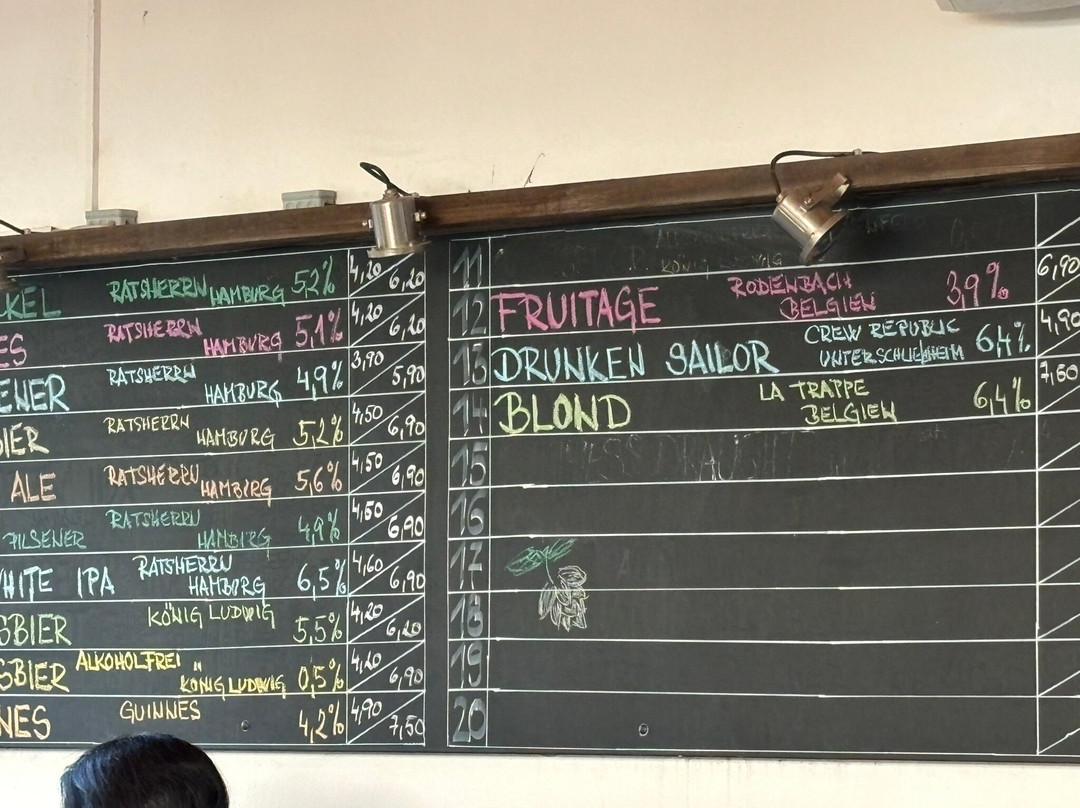 CKEL RATSHERRN HAMBURG 5,2% 4,20 6,20
ES RATSHERRN HAMBURG 5,1% 4,20 6,20
ENER RATSHERRN HAMBURG 4,9% 3,90 5,90
BIER RATSHERRN HAMBURG 5,2% 4,50 6,90
ALE RATSHERRN HAMBURG 5,6% 4,50 6,90
PILSENER RATSHERRN HAMBURG 4,9% 4,50 6,90
HITE IPA RATSHERRN HAMBURG 6,5% 4,60 6,90
SBIER KÖNIG LUDWIG 5,5% 4,20 6,20
SBIER ALKOHOLFREI KÖNIG LUDWIG 0,5% 4,20 6,90
NES GUINNES 4,2% 4,90 7,50
11 KÖNIG LUDWIG
12 FRUITAGE RODENBACH BELGIEN 3,9% 6,90
13 DRUNKEN SAILOR CREW REPUBLIC UNTERSCHLEIßHEIM 6,4% 4,90
14 BLOND LA TRAPPE BELGIEN 6,4% 7,60
15
16
17
18
19
20